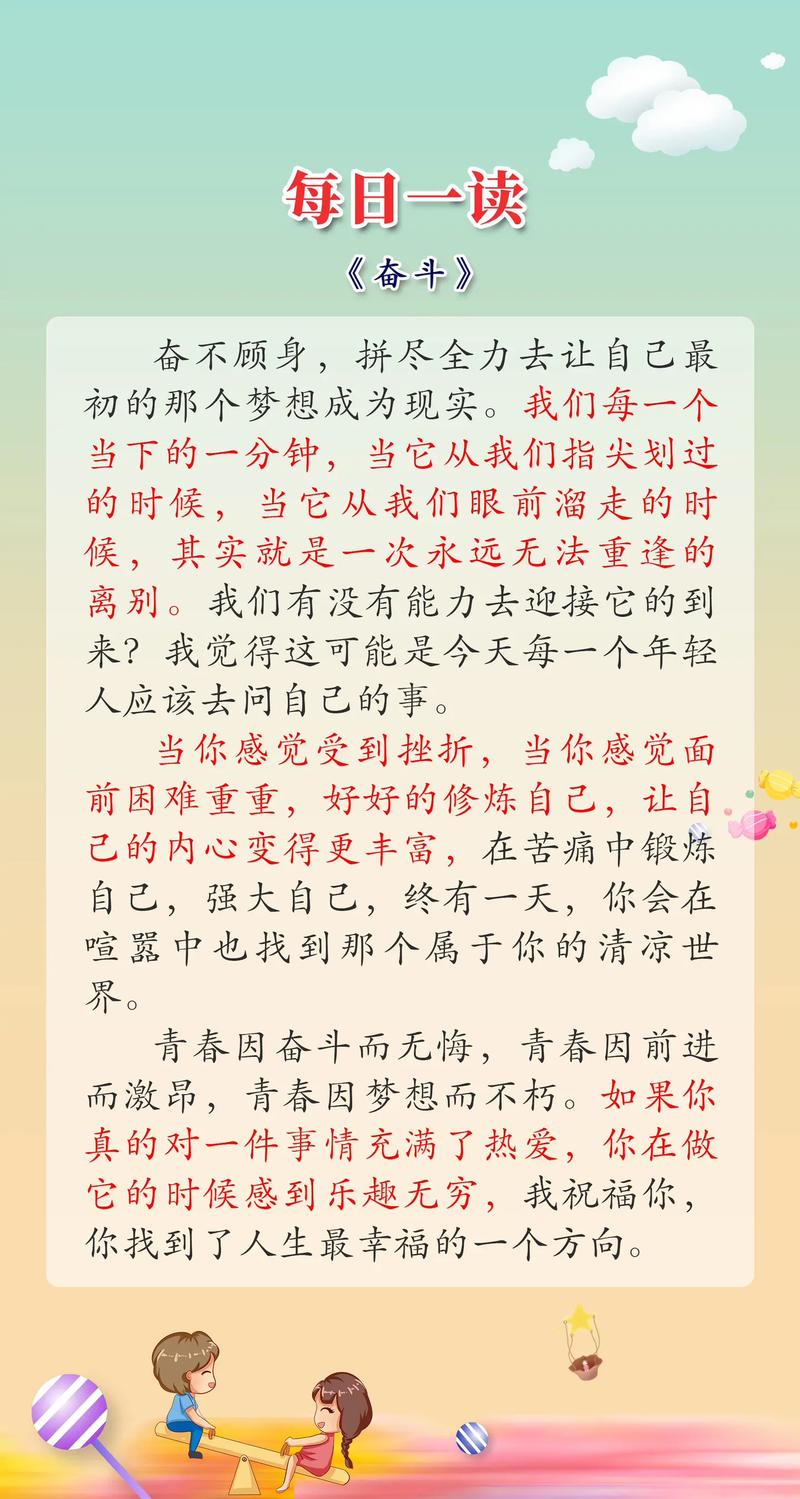 每日一读
《奋斗》
奋不顾身，拼尽全力去让自己最
初的那个梦想成为现实。我们每一个
当下的一分钟，当它从我们指尖划过
的时候，当它从我们眼前溜走的时
候，其实就是一次永远无法重逢的
离别。我们有没有能力去迎接它的到
来？我觉得这可能是今天每一个年轻
人应该去问自己的事。
当你感觉受到挫折，当你感觉面
前困难重重，好好的修炼自己，让自
己的内心变得更丰富，在苦痛中锻炼
自己，强大自己，终有一天，你会在
喧嚣中也找到那个属于你的清凉世
界。
青春因奋斗而无悔，青春因前进
而激昂，青春因梦想而不朽。如果你
真的对一件事情充满了热爱，你在做
它的时候感到乐趣无穷，我祝福你，
你找到了人生最幸福的一个方向。